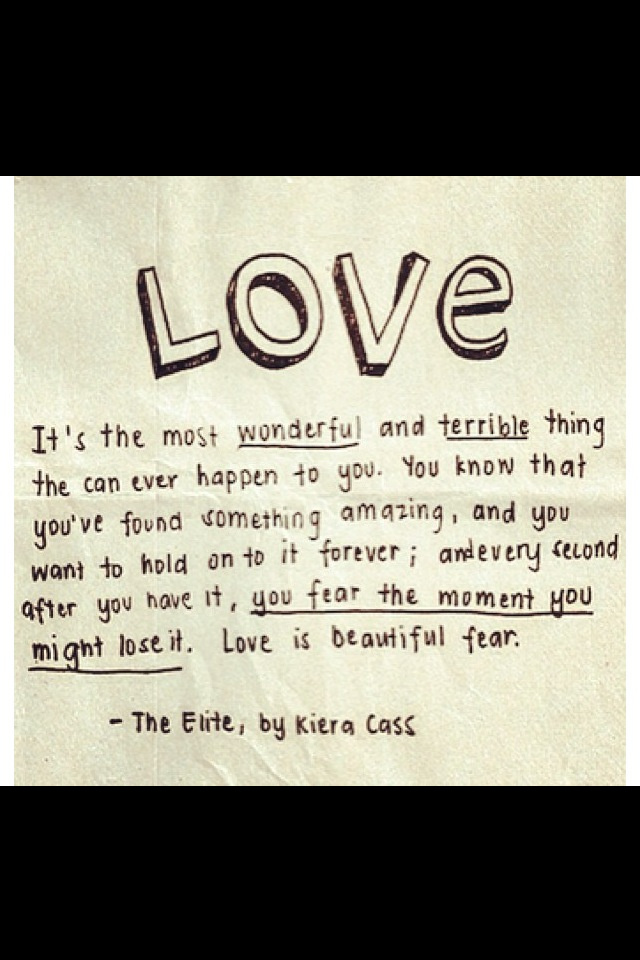 LOVe
It's the most wonderful and terrible thing
the can ever happen to you. You know that
you've found something amazing, and you
want to hold on to it forever; and every second
after you have it, you fear the moment you
might lose it. Love is beautiful fear.
- The Elite, by Kiera Cass